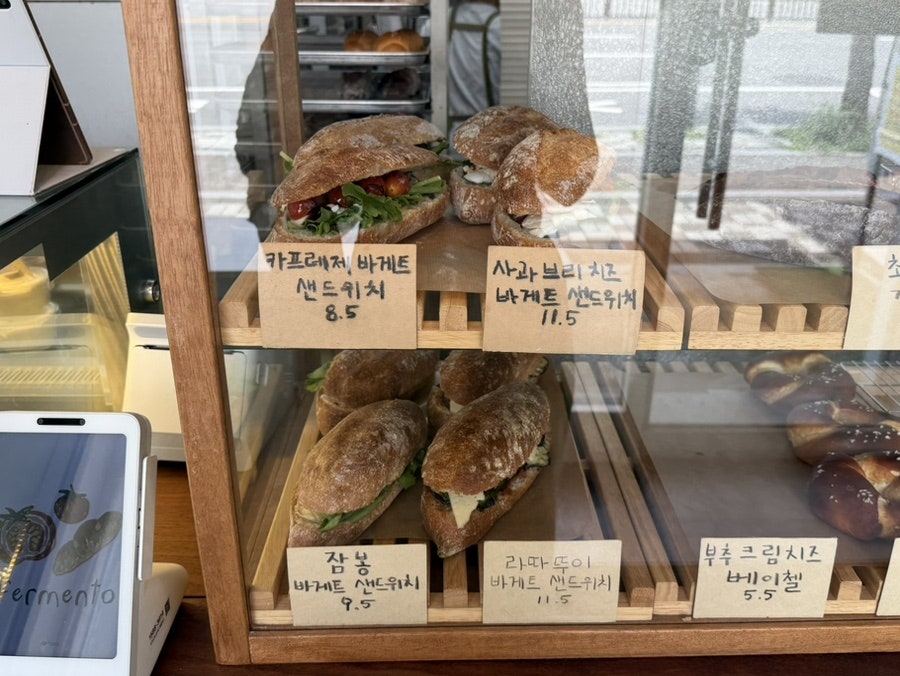 카프레제 바게트
샌드위치
8.5
사과 브리치즈
바게트 샌드위치
11.5
잠봉
바게트 샌드위치
9.5
라따뚜이
바게트 샌드위치
11.5
부추크림치즈
베이첼
5.5
ermento